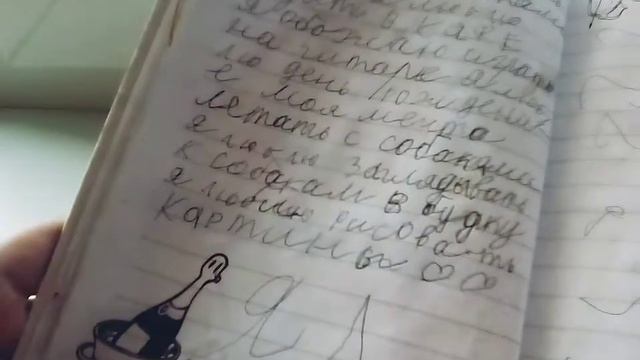 в КАФЕ
я обожаю играть
на гитаре я люб
лю день рождения
е моя мечта
летать с собаками
я люблю заглядывать
к собакам в будку
я люблю рисовать
картины ♡♡
Я Л